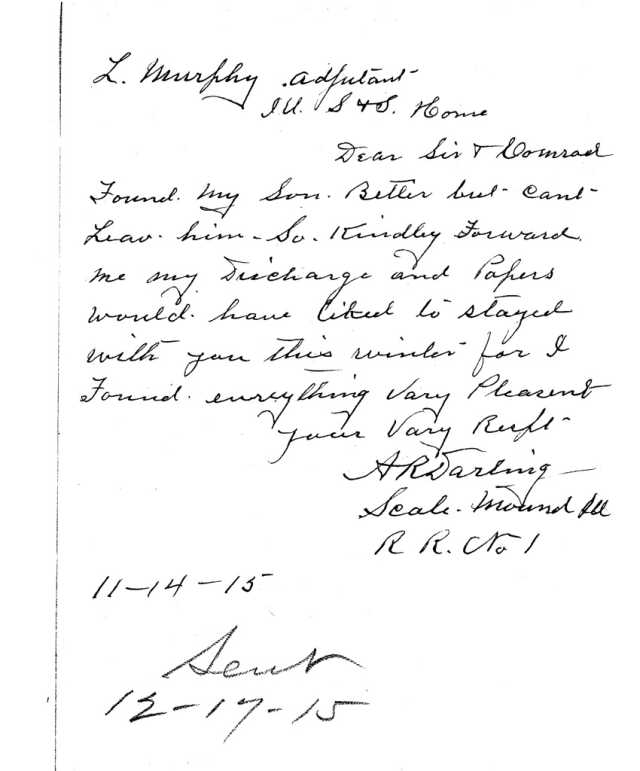 L. Murphy Adjutant
Ill. S & S. Home
Dear Sir & Comrad
Found. my Son. Better but Cant
Leav. him - So. Kindley Forward
me my Discharge and Papers
would. have liked to stayed
with you this winter for I
Found. evreything Vary Pleasent
your Vary Resft
A R Darling
Scale. Mound Ill
R R. No 1
11-14-15
Sent
12-17-15